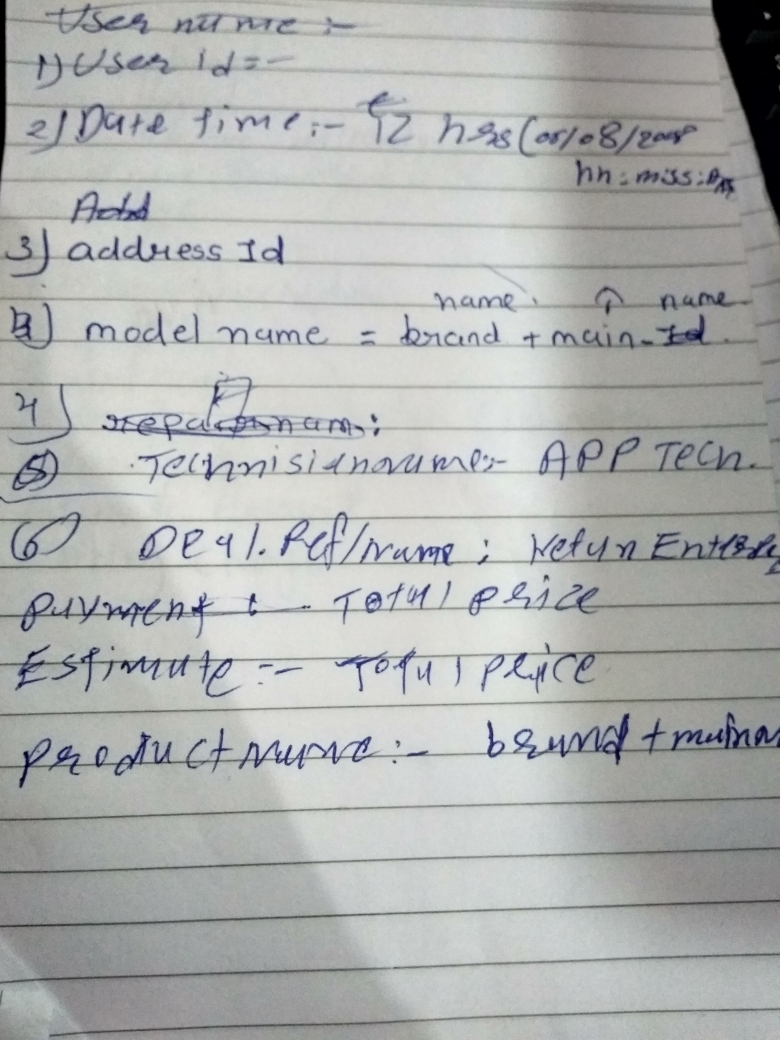 User name :-
1) User id =-
2) Date time :- 12 hrs (05/08/2008
hh:miss:
Add
3) address Id
name name
4) model name = brand + main-Id.
4)
5) Technisianname:- APP Tech.
6) Deal. Ref/name ; Retun
payment :- Total price
Estimate :- Total price
product name :- brand +